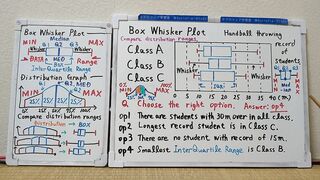 Box Whisker Plot
Median
MIN Q1 Q2 Q3 MAX
Whisker Whisker
DATA MED
BOX Range
InterQuartile Range
Distribution Graph
MIN MED MAX
25% 25% 25% 25%
Compare distribution ranges
Distribution → BOX
Box Whisker Plot Handball throwing
Compare distribution ranges record
Class A of
Class B students
Class C Whisker Whisker
MIN MAX
0 5 10 15 20 25 30 35 40 (m)
Q. Choose the right option. Answer: op4
op1 There are students with 30m over in all class.
op2 Longest record student is in Class C.
op3 There are students with no record of 15m.
op4 Smallest InterQuartile Range is Class B.